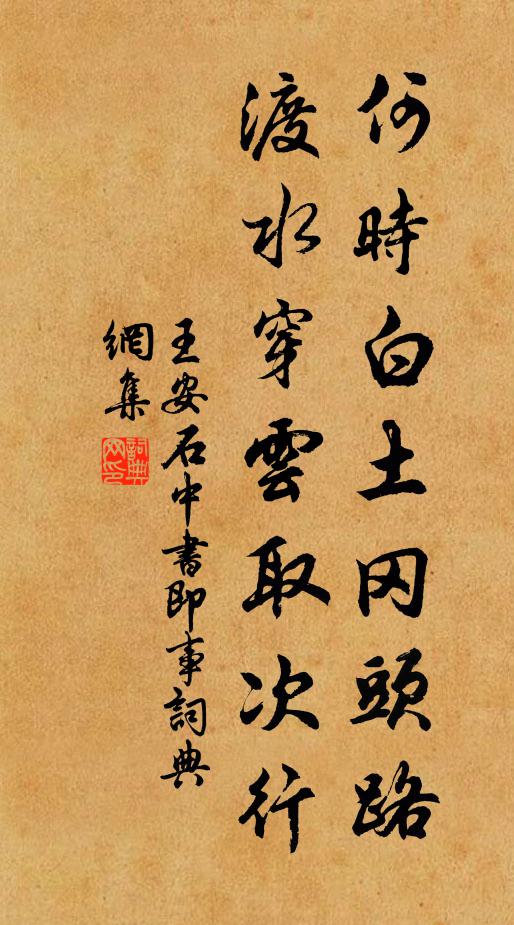 何時白土冈頭路
渡水穿雲取次行
王安石中書即事詞典
網集
詞典網印